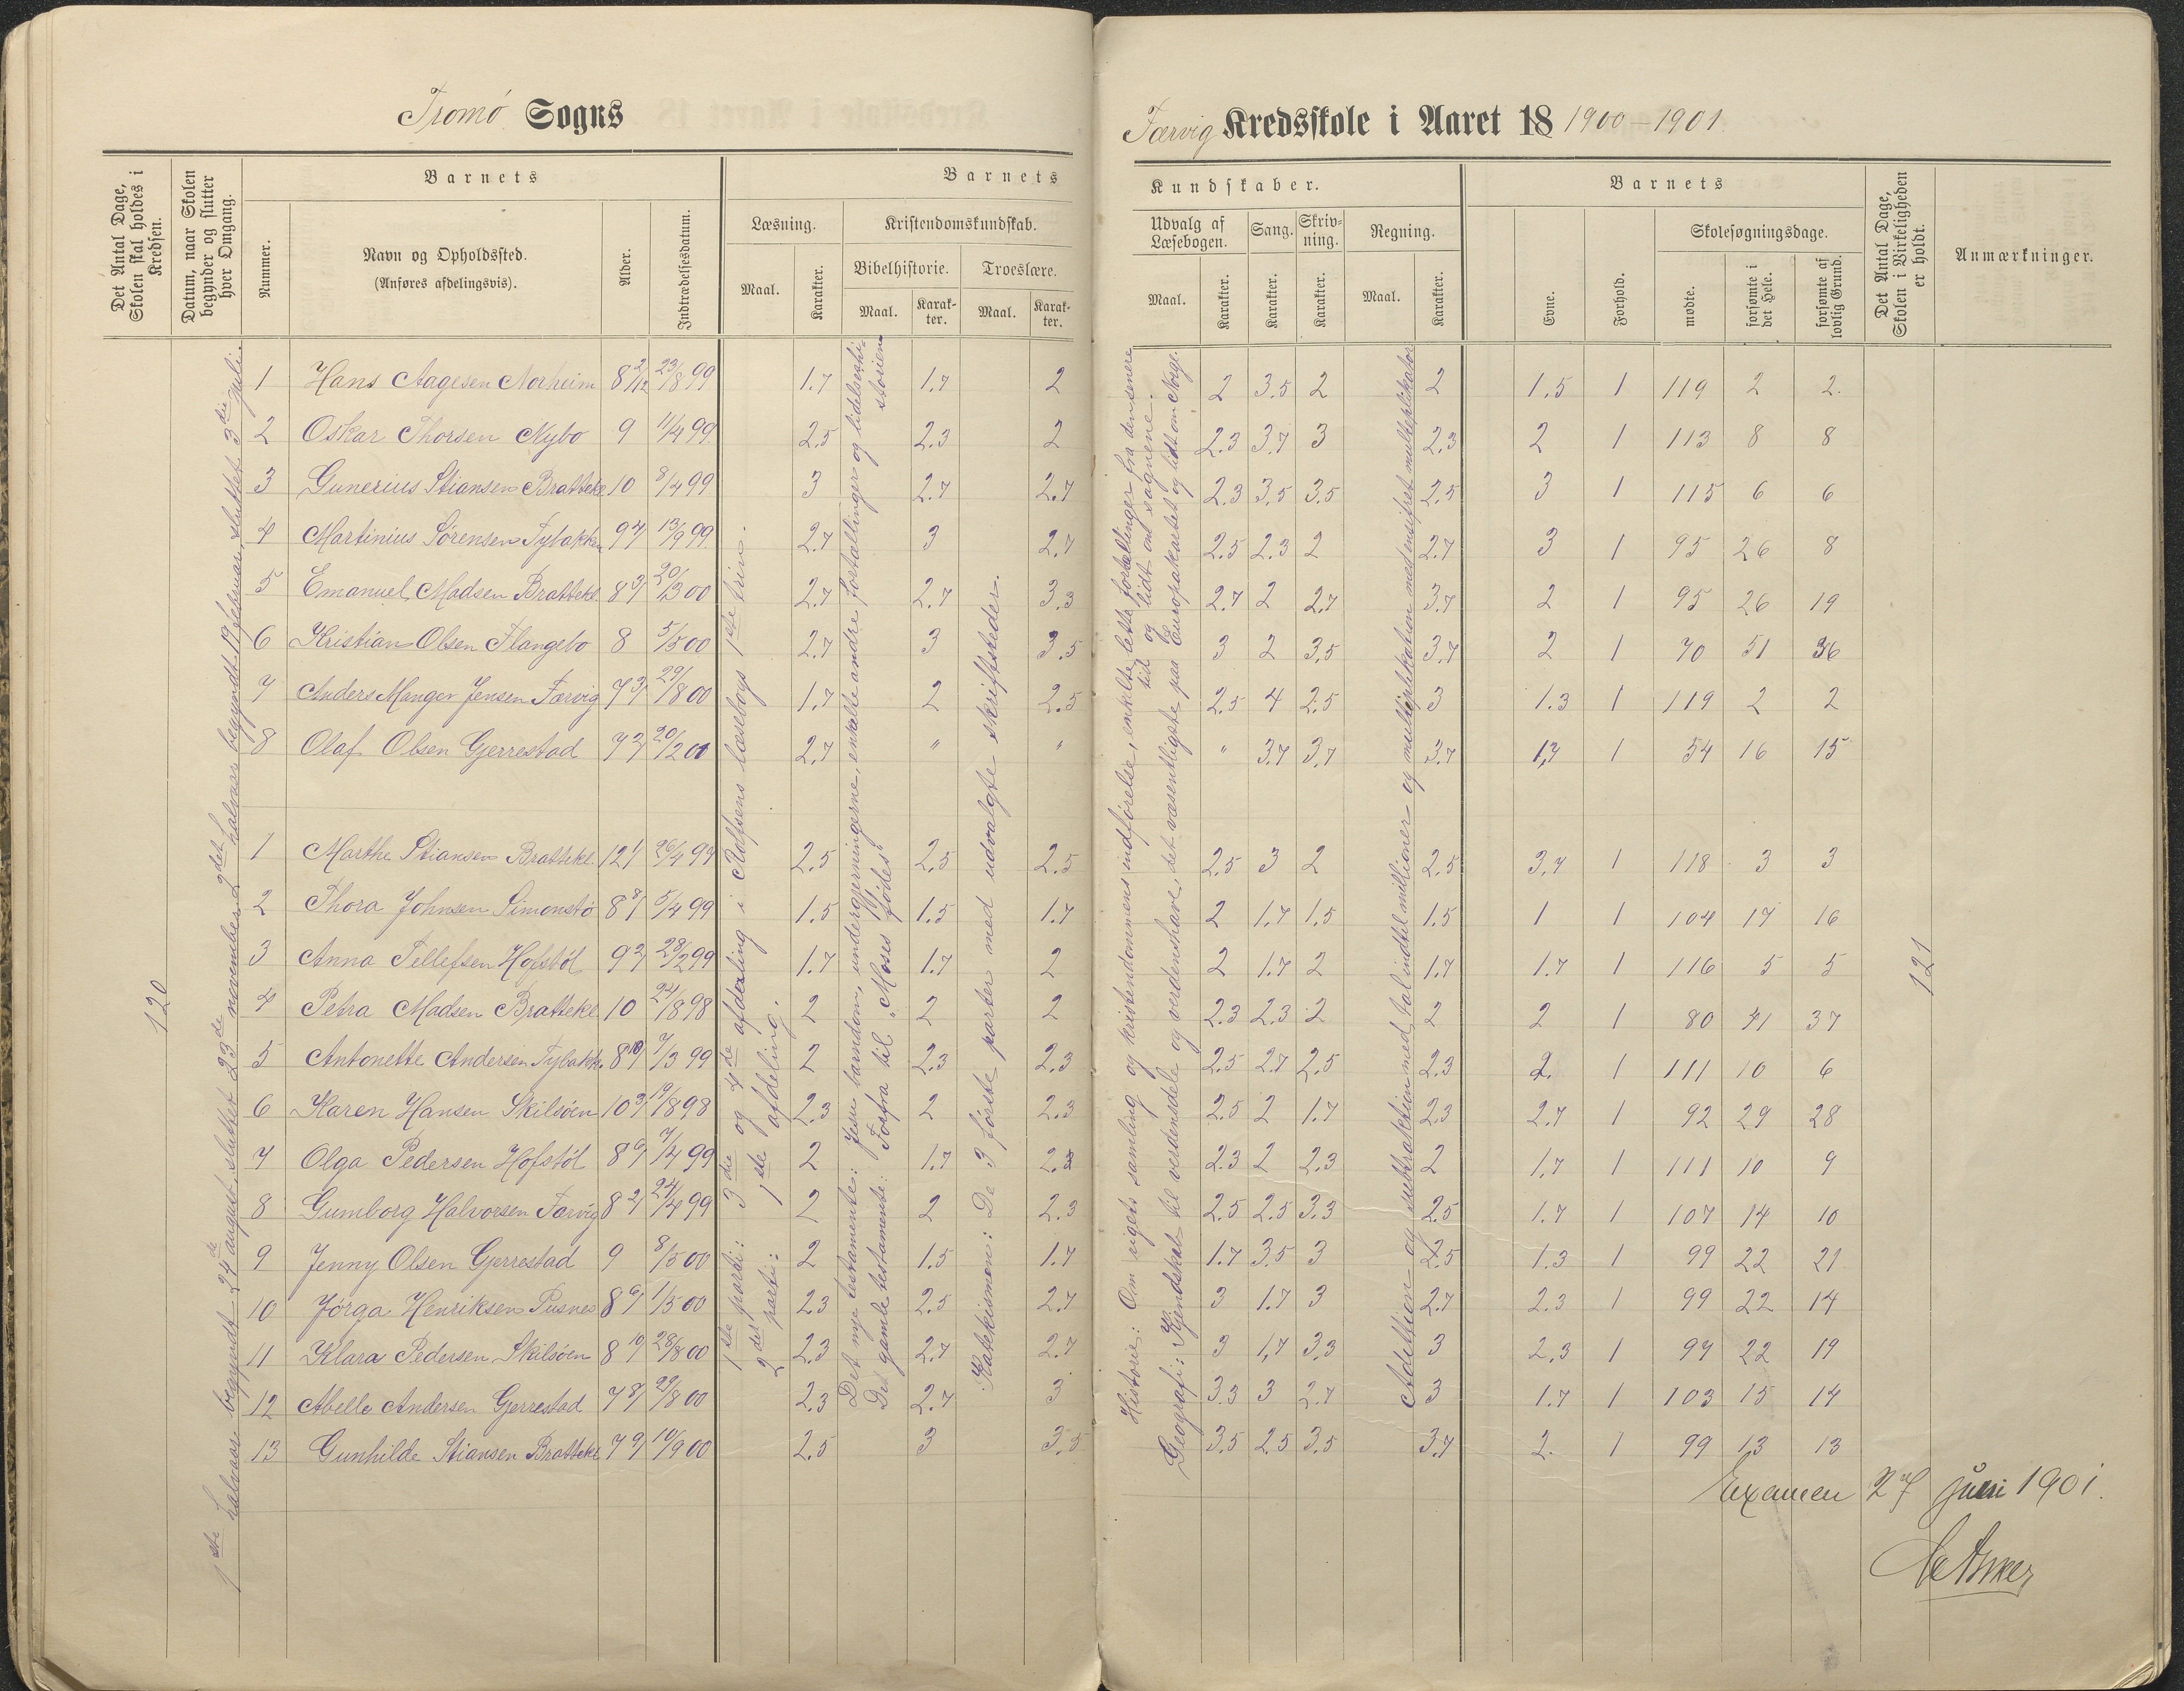 Tromö Sogns
Færvig Kredsskole i Aaret 18 1900-1901
Det Antal Dage, Skolen skal holdes i Kredsen.
Datum, naar Skolen begynder og slutter hver Omgang.
Barnets
Nummer.
Navn og Opholdssted.
(Anføres afdelingsvis).
Alder.
Indtrædelsesdatum.
Barnets
Læsning.
Maal.
Karakter.
Kristendomskundskab.
Bibelhistorie.
Maal.
Karakter.
Troeslære.
Maal.
Karakter.
Kundskaber.
Udvalg af Læsebogen.
Maal.
Karakter.
Sang.
Karakter.
Skrivning.
Karakter.
Regning.
Maal.
Karakter.
Barnets
Evne.
Forhold.
Skolesøgningsdage.
mødte.
forsømte i det Hele.
forsømte af lovlig Grund.
Det Antal Dage, Skolen i Virkeligheden er holdt.
Anmærkninger.
120
1ste halvaar begyndt 24de august, sluttet 23de november, 2det halvaar begyndt 19 februar, sluttet 3die juli.
1ste parti: 3die og 4de afdeling i Rolfsens læsebogs 1ste trin.
2det parti: 1ste afdeling.
Det nye testamente: Jesu barndom, undergjerningerne, enkelte andre fortællinger og lidelseshistorien
Det gamle testamente: Forfra til "Moses fødes"
Katekismen: De 3 første parter med udvalgte skriftsteder.
Historie: Om rigets samling og kristendommens indførelse, enkelte lette fortællinger fra den senere tid og lidt om sagnene.
Geografi: Kjendskab til verdensdele og verdenshave, det væsentligste paa Europakartet og lidt om Norge.
Addition og subtraktion med tal indtil millioner og multiplikation med ensifret multiplikator
1 Hans Aagesen Norheim 8 2/12 23/8 99 1.7 1.7 2 2 3.5 2 2 1.5 1 119 2 2
2 Oskar Thorsen Nybo 9 11/4 99 2.5 2.3 2 2.3 3.7 3 2.3 2 1 113 8 8
3 Gunerius Stiansen Bratteke 10 8/4 99 3 2.7 2.7 2.3 3.5 3.5 2.5 3 1 115 6 6
4 Martinius Sørensen Tybakken 9 4/ 13/9 99 2.7 3 2.7 2.5 2.3 2 2.7 3 1 95 26 8
5 Emanuel Madsen Brattekl. 8 3/ 20/3 00 2.7 2.7 3.3 2.7 2 2.7 3.7 2 1 95 26 19
6 Kristian Olsen Flangebo 8 5/5 00 2.7 3 3.5 3 2 3.5 3.7 2 1 70 51 36
7 Anders Manger Jensen Færvig 7 3/ 29/8 00 1.7 2 2.5 2.5 4 2.5 3 1.3 1 119 2 2
8 Olaf Olsen Gjerrestad 7 2/ 20/2 01 2.7 " " " 3.7 3.7 3.7 1,7 1 54 16 15
1 Marthe Stiansen Brattekl. 12 1/ 26/4 99 2.5 2.5 2.5 2.5 3 2 2.5 3.7 1 118 3 3
2 Thora Johnsen Simonstø 8 8/ 5/4 99 1.5 1.5 1.7 2 1.7 1.5 1.5 1 1 104 17 16
3 Anna Tellefsen Hofstøl 9 2/ 28/2 99 1.7 1.7 2 2 1.7 2 1.7 1.7 1 116 5 5
4 Petra Madsen Brattekl 10 24/8 98 2 2 2 2.3 2.3 2 2 2 1 80 41 37
5 Antonette Andersen Tybakk. 8 10/ 7/3 99 2 2.3 2.3 2.5 2.7 2.5 2.3 2. 1 111 10 6
6 Karen Hansen Skilsøen 10 3/ 19/8 98 2.3 2 2.3 2.5 2 1.7 2.3 2.7 1 92 29 28
7 Olga Pedersen Hofstøl 8 6/ 7/4 99 2 1.7 2.3 2.3 2 2.3 2 1.7 1 111 10 9
8 Gumborg Halvorsen Færvig 8 2/ 24/4 99 2 2 2.3 2.5 2.5 3.3 2.5 1.7 1 107 14 10
9 Jenny Olsen Gjerrestad 9 8/5 00 2 1.5 1.7 1.7 3.5 3 2.5 1.3 1 99 22 21
10 Jørga Henriksen Pusnes 8 6/ 1/5 00 2.3 2.5 2.7 3 1.7 3 2.7 2.3 1 99 22 14
11 Klara Pedersen Skilsøen 8 10/ 28/8 00 2.3 2.7 2.7 3 1,7 3.3 3 2.3 1 99 22 19
12 Abelle Andersen Gjerrestad 7 8/ 29/8 00 2.3 2.7 3 3.3 3 2.7 3 1.7 1 103 15 14
13 Gunhilde Stiansen Brattekl 7 9/ 10/9 00 2.5 3 3.5 3.5 2.5 3.5 3.7 2. 1 99 13 13
121
Examen 27 juni 1901.